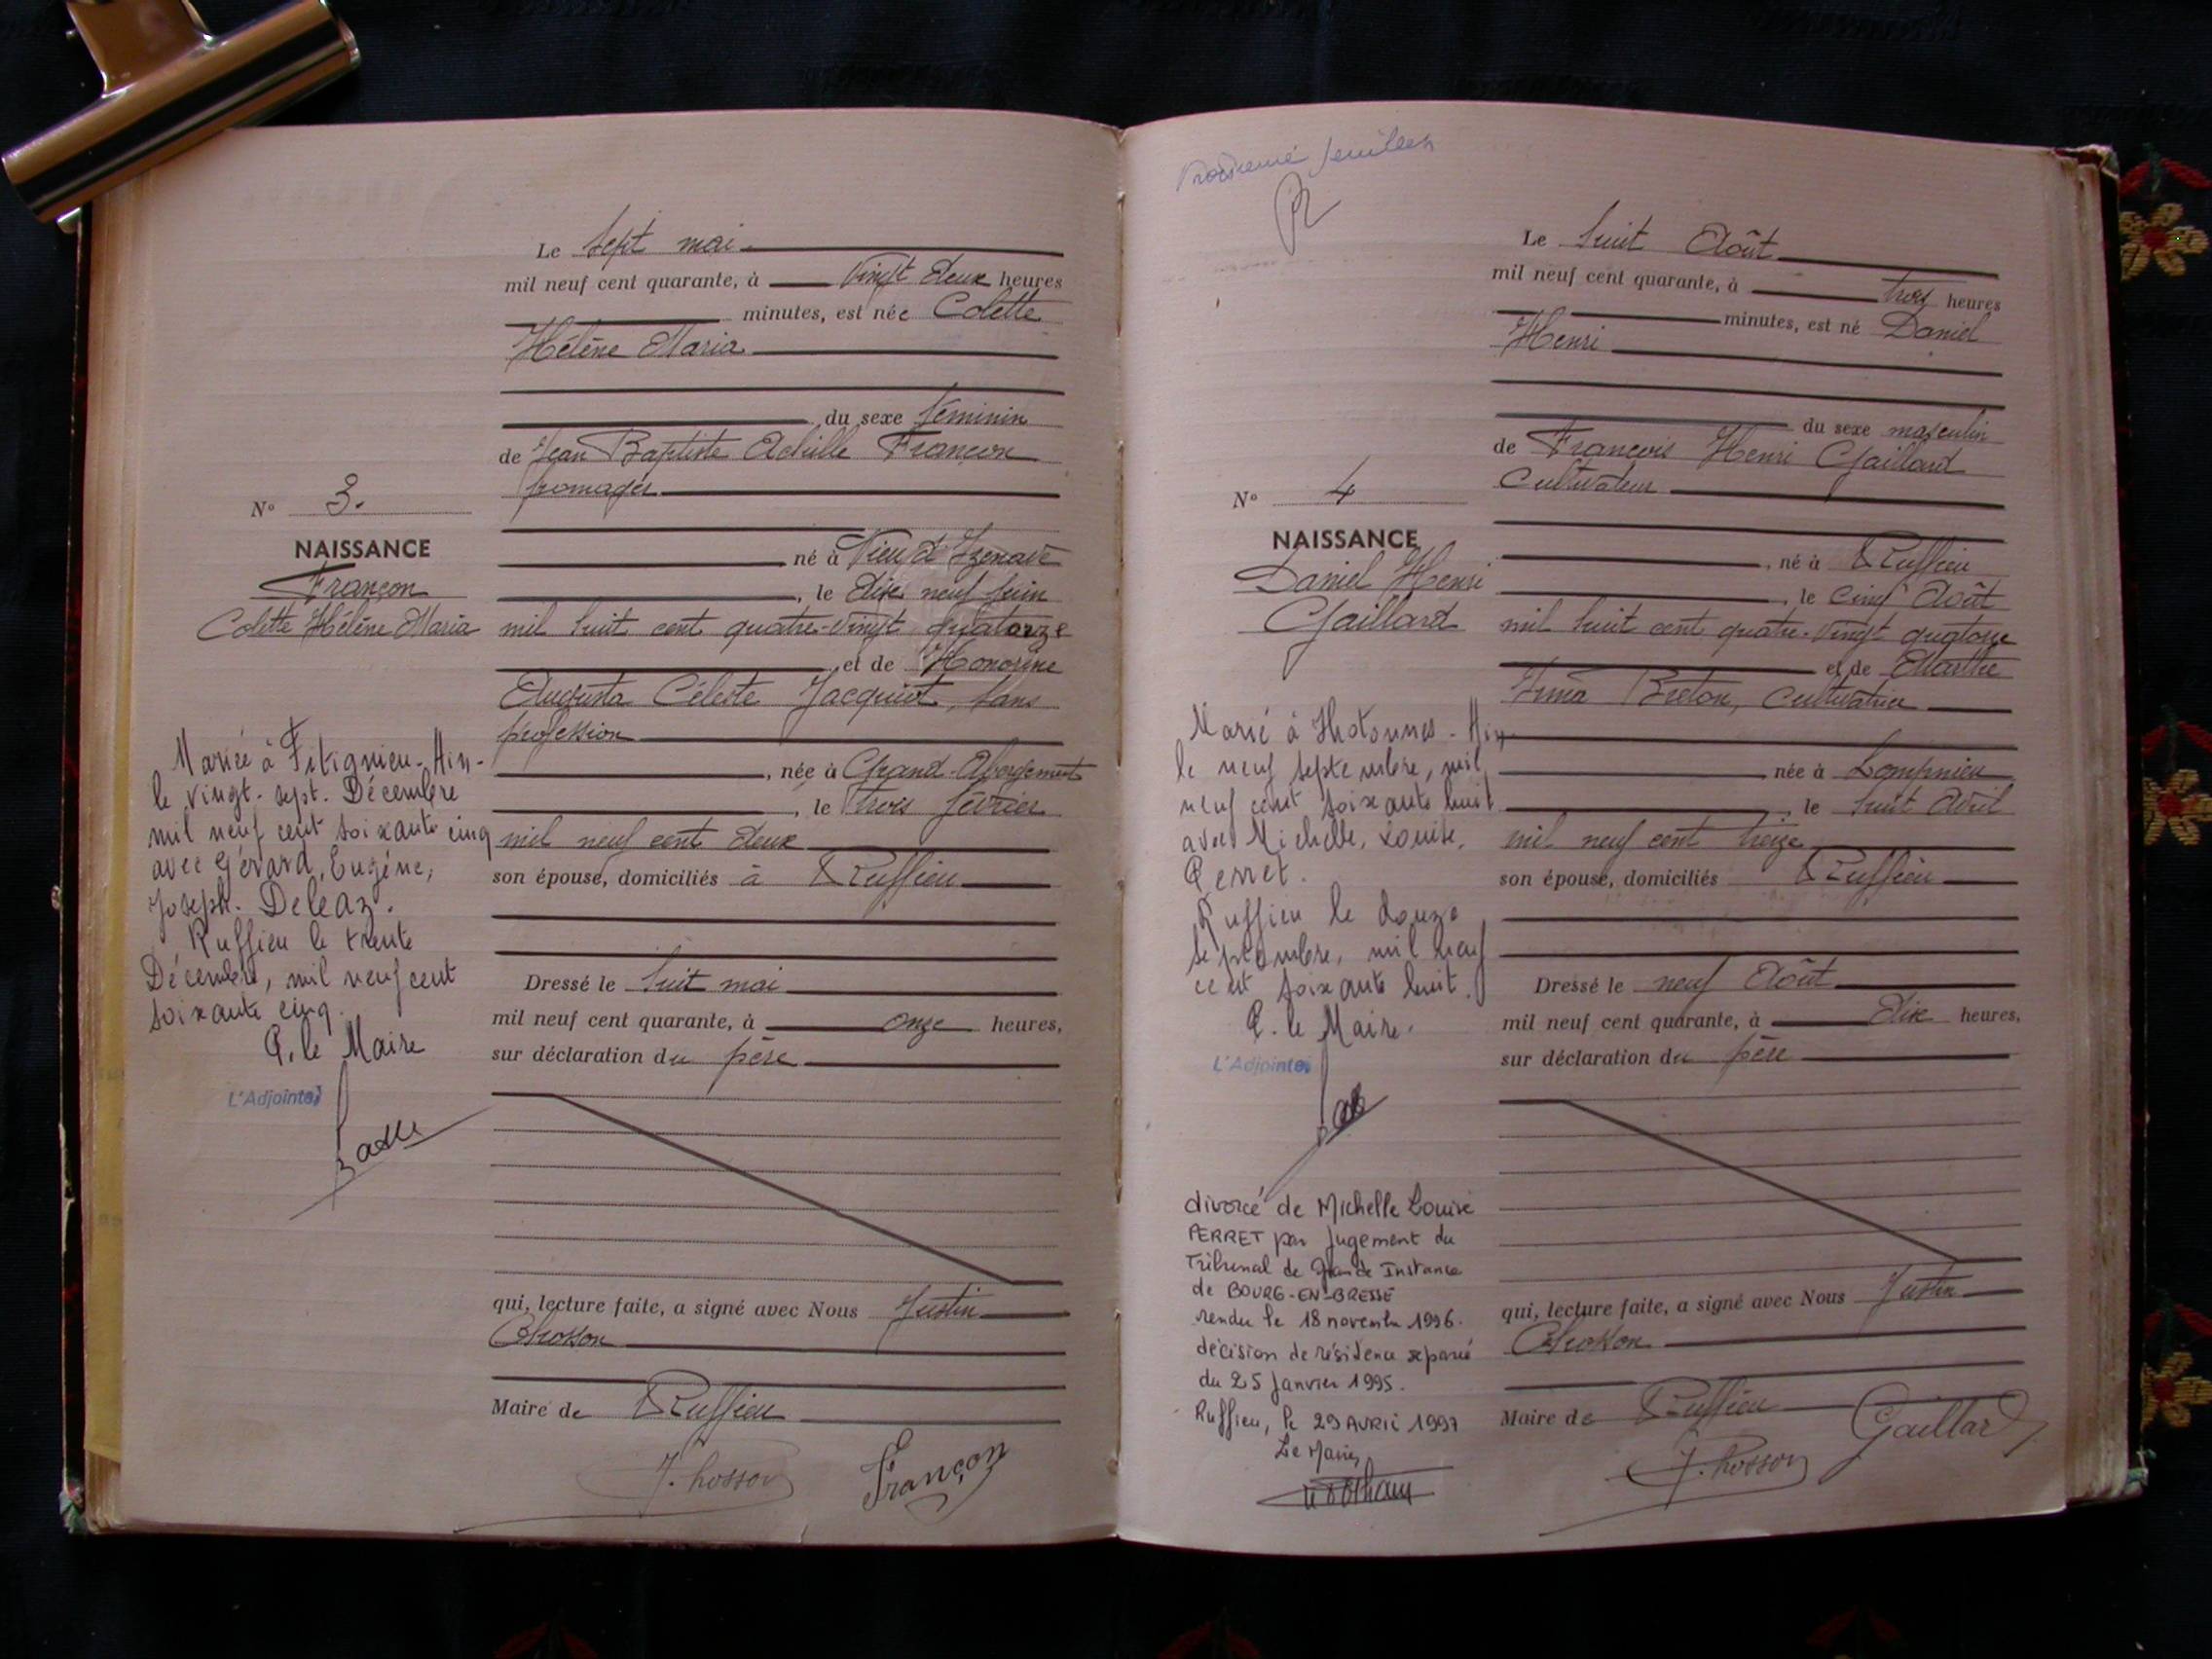 Le sept mai
mil neuf cent quarante, à vingt deux heures
minutes, est née Colette
Hélène Maria
du sexe féminin
de Jean Baptiste Achille Françon
fromager
né à Vieu d'Izenave
, le dix neuf juin
mil huit cent quatre-vingt quatorze
et de Honorine
Augusta Céleste Jacquiot, sans
profession
, née à Grand-Abergement
, le trois février
mil neuf cent deux
son épouse, domiciliés à Ruffieu
Dressé le huit mai
mil neuf cent quarante, à onze heures,
sur déclaration du père
qui, lecture faite, a signé avec Nous Justin
Chosson
Maire de Ruffieu
J. Chosson
Françon
No 3.
NAISSANCE
Françon
Colette Hélène Maria
Mariée à Fitignieu-Ain-
le vingt-sept. Décembre
mil neuf cent soixante cinq
avec Gérard, Eugène,
Joseph. Deléaz.
Ruffieu le trente
Décembre, mil neuf cent
soixante cinq.
P. le Maire
L'Adjointe,
Le huit Août
mil neuf cent quarante, à trois heures
minutes, est né Daniel
Henri
du sexe masculin
de François Henri Gaillard
Cultivateur
, né à Ruffieu
, le cinq Août
mil huit cent quatre-vingt quatorze
et de Marthe
Irma Breton, Cultivatrice
née à Lompnieu
, le huit Avril
mil neuf cent treize
son épouse, domiciliés Ruffieu
Dressé le neuf Août
mil neuf cent quarante, à dix heures,
sur déclaration du père
qui, lecture faite, a signé avec Nous Justin
Chosson
Maire de Ruffieu
Gaillard
J. Chosson
No 4
NAISSANCE
Daniel Henri
Gaillard
Marié à Hotonnes-Ain
le neuf septembre, mil
neuf cent soixante huit
avec Michelle, Louise,
Perret.
Ruffieu le douze
septembre, mil neuf
cent soixante huit.
P. le Maire.
L'Adjointe,
divorcé de Michelle Louise
PERRET par jugement du
Tribunal de Grande Instance
de BOURG-EN-BRESSE
rendu le 18 novembre 1996.
décision de résidence séparée
du 25 janvier 1995.
Ruffieu, le 29 AVRIL 1997
Le Maire,